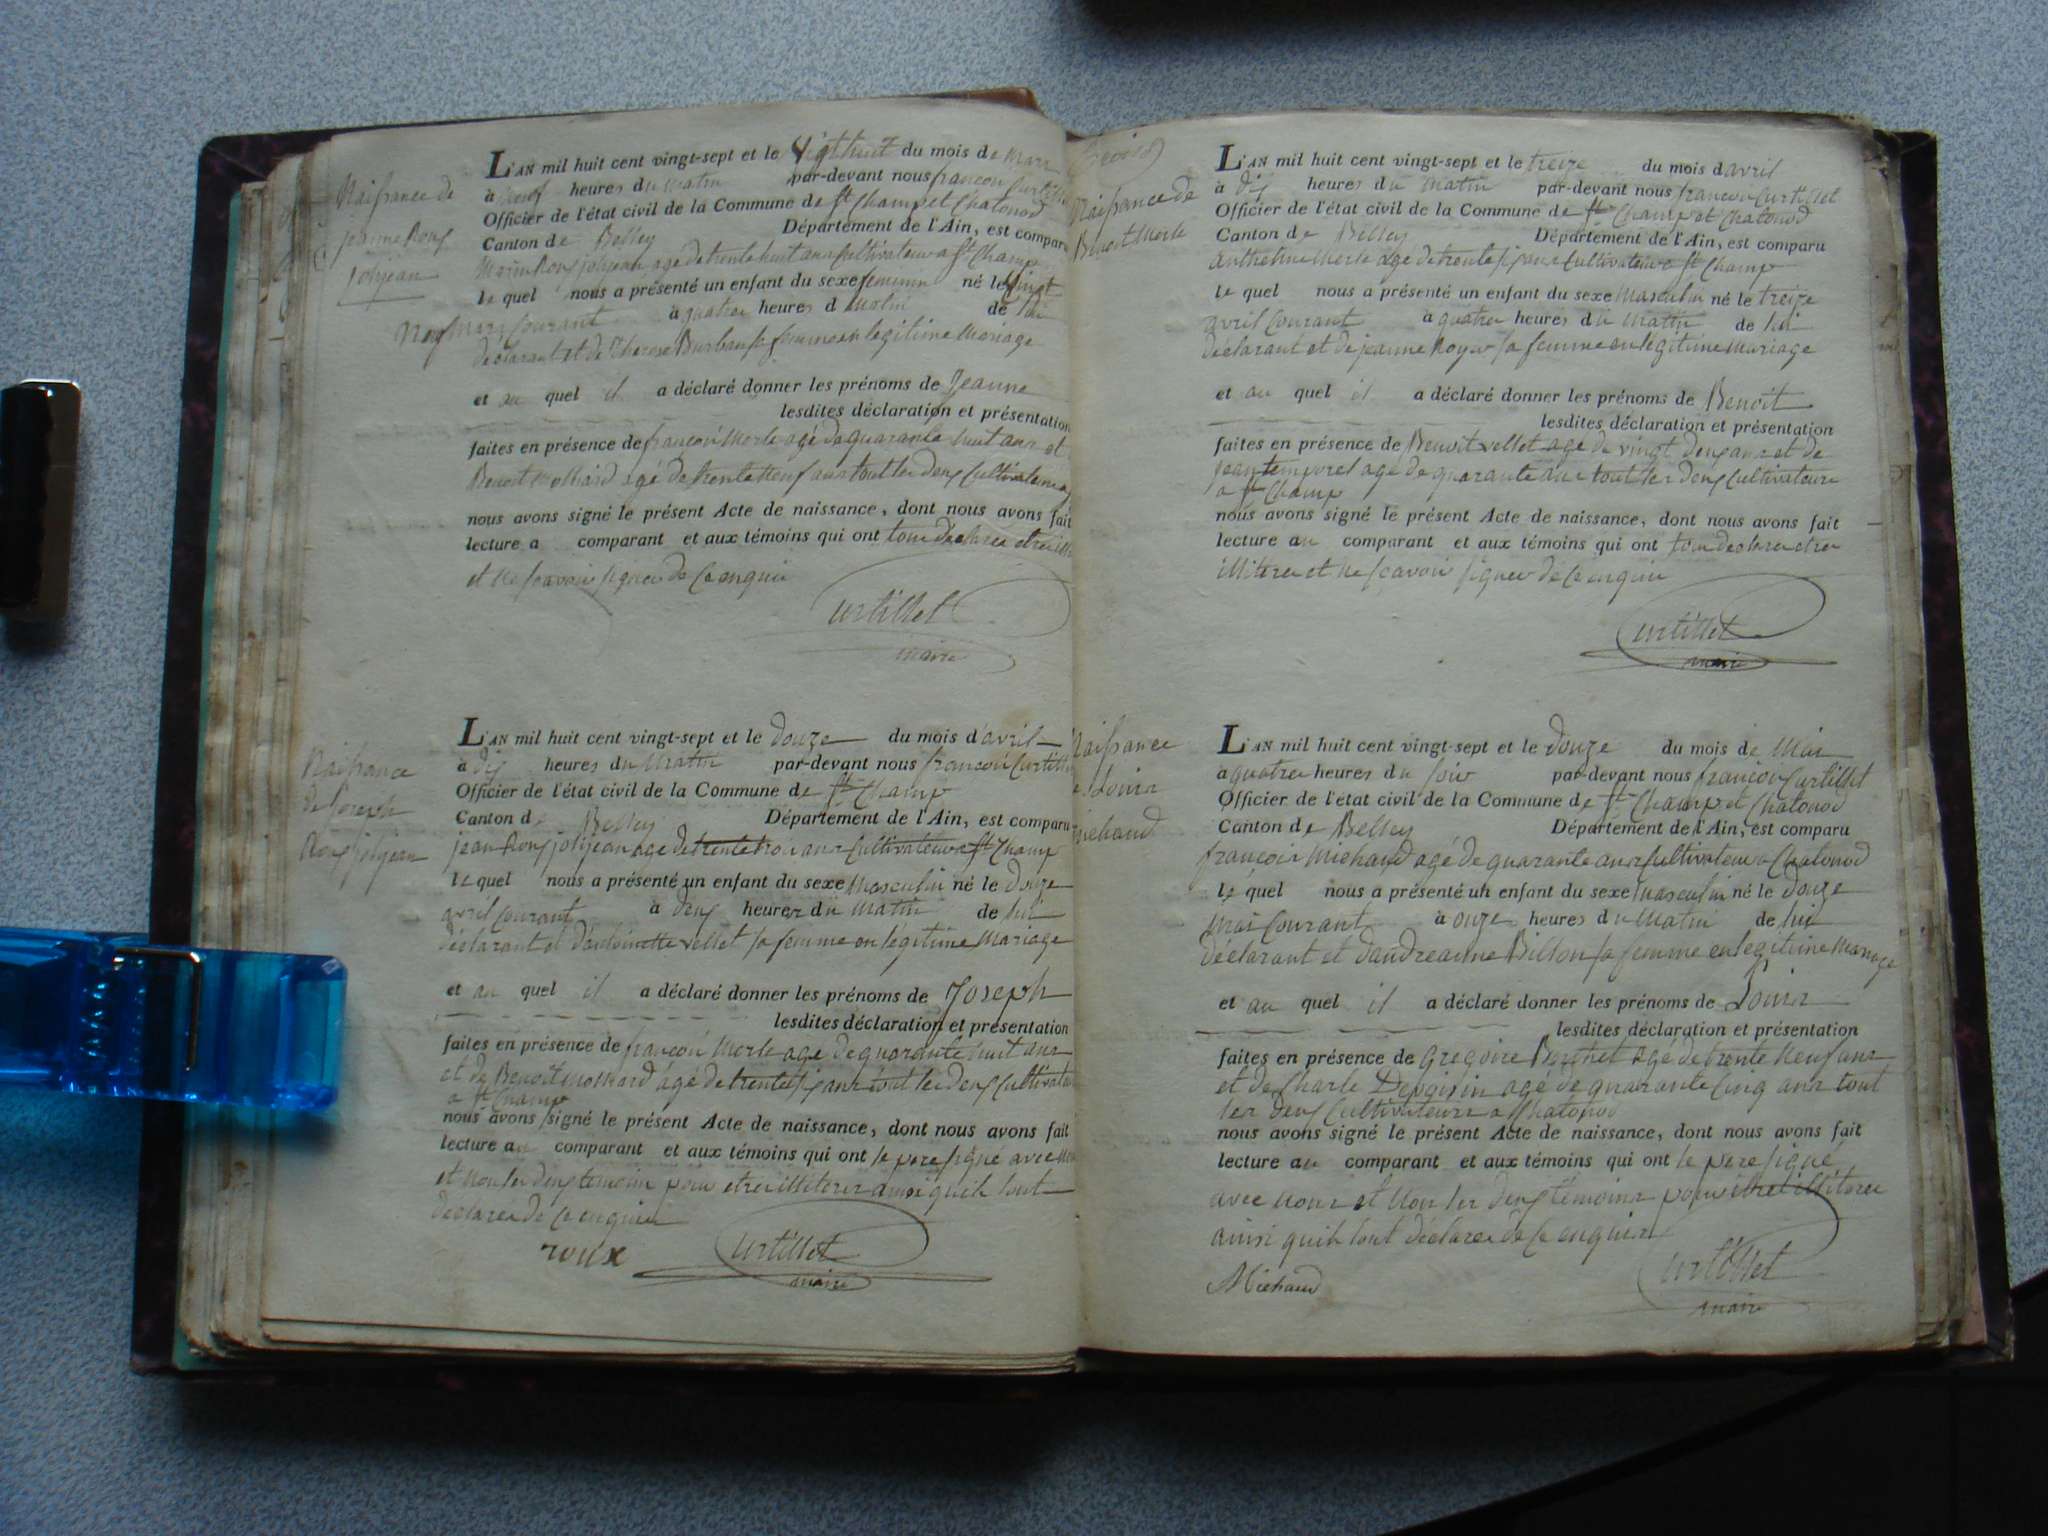 Naissance de
jeanne Roux
joljean
L'AN mil huit cent vingt-sept et le Vigthuit du mois de Mars
à Neuf heures du Matin par-devant nous francois Curtillet
Officier de l'état civil de la Commune de St Champ et Chatonod
Canton de Belley Département de l'Ain, est comparu
Roux joljean age de trente huit ans Cultivateur a St Champ
le quel nous a présenté un enfant du sexe feminin né le vingt
mars Courant à quatre heures d matin de lui
déclarant et de Therese Burban sa femme en legitime Mariage
et au quel il a déclaré donner les prénoms de Jeanne
lesdites déclaration et présentation
faites en présence de francois Merle agé de quarante huit ans et
Benoit Molliard agé de trente Neuf ans tout les deux Cultivateurs
nous avons signé le présent Acte de naissance, dont nous avons fait
lecture a comparant et aux témoins qui ont tous declarer etre
et ne scavoir signer de ce enquis
Curtillet
maire
Naissance
de Joseph
Roux joljean
L'AN mil huit cent vingt-sept et le douze du mois d'avril
à dix heures du Matin par-devant nous francois Curtillet
Officier de l'état civil de la Commune de St Champ
Canton de Belley Département de l'Ain, est comparu
jean Roux joljean age de trente trois ans Cultivateur a St Champ
le quel nous a présenté un enfant du sexe Masculin né le douze
avril Courant à deux heures du Matin de lui
déclarant et d'antoinette vellet sa femme en légitime Mariage
et au quel il a déclaré donner les prénoms de Joseph
lesdites déclaration et présentation
faites en présence de francois Merle age de quarante huit ans
et de Benoit Molliard agé de trente six ans tout les deux Cultivateurs
a St Champ
nous avons signé le présent Acte de naissance, dont nous avons fait
lecture au comparant et aux témoins qui ont le pere signé avec
et Non les deux temoins pour etre illiterer ainsi quils l'ont
declarer de ce enquis
roux Curtillet
maire
Naissance de
Benoit Merle
L'AN mil huit cent vingt-sept et le treize du mois d avril
à dix heures du matin par-devant nous francois Curtillet
Officier de l'état civil de la Commune de St Champ et Chatonod
Canton de Belley Département de l'Ain, est comparu
anthelme Merle age de trente six ans Cultivateur a St Champ
le quel nous a présenté un enfant du sexe Masculin né le treize
avril Courant à quatre heures du Matin de lui
déclarant et de jeanne Royer sa femme en légitime Mariage
et au quel il a déclaré donner les prénoms de Benoit
lesdites déclaration et présentation
faites en présence de Benoit vellet age de vingt deux ans et de
jean temporel age de quarante ans tout les deux Cultivateurs
a St Champ
nous avons signé le présent Acte de naissance, dont nous avons fait
lecture au comparant et aux témoins qui ont tous declarer etre
illiterer et ne scavoir signer de ce enquis
Curtillet
maire
Naissance
de Louis
Michaud
L'AN mil huit cent vingt-sept et le douze du mois de Mai
à quatre heures du soir par-devant nous francois Curtillet
Officier de l'état civil de la Commune de St Champ et Chatonod
Canton de Belley Département de l'Ain, est comparu
francois Michaud agé de quarante ans Cultivateur a Chatonod
le quel nous a présenté un enfant du sexe Masculin né le douze
Mai Courant à onze heures du Matin de lui
déclarant et d'andreanne Billon sa femme en legitime Mariage
et au quel il a déclaré donner les prénoms de Louis
lesdites déclaration et présentation
faites en présence de Gregoire Berthet agé de trente Neuf ans
et de Charle Depoisin agé de quarante Cinq ans tout
les deux Cultivateurs a Chatonod
nous avons signé le présent Acte de naissance, dont nous avons fait
lecture au comparant et aux témoins qui ont le pere signé
avec nous et Non les deux témoins pour etre illiterer
ainsi quils l'ont déclarer de ce enquis
Michaud Curtillet
maire